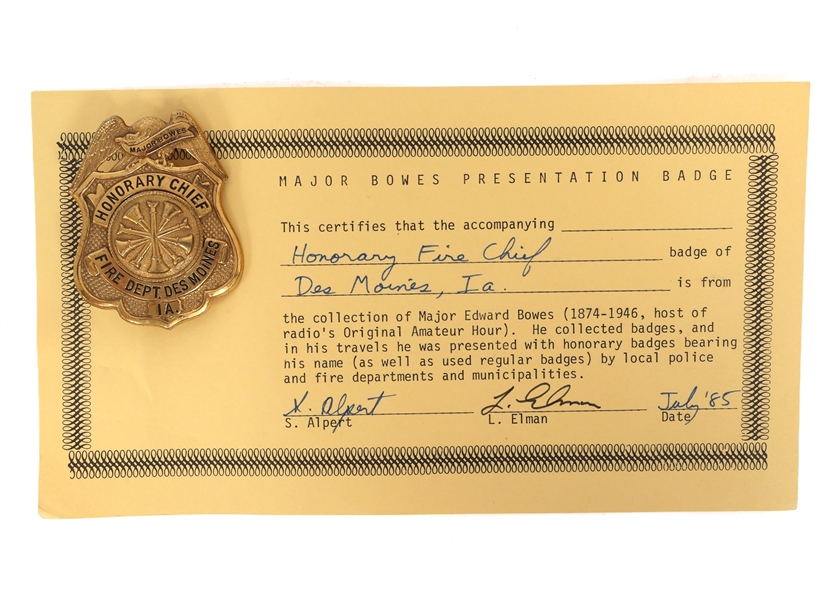 MAJOR BOWES
HONORARY CHIEF
FIRE DEPT. DES MOINES
IA.
MAJOR BOWES PRESENTATION BADGE
This certifies that the accompanying
Honorary Fire Chief badge of
Des Moines, Ia. is from
the collection of Major Edward Bowes (1874-1946, host of
radio's Original Amateur Hour). He collected badges, and
in his travels he was presented with honorary badges bearing
his name (as well as used regular badges) by local police
and fire departments and municipalities.
S. Alpert L. Elman July '85
S. Alpert L. Elman Date